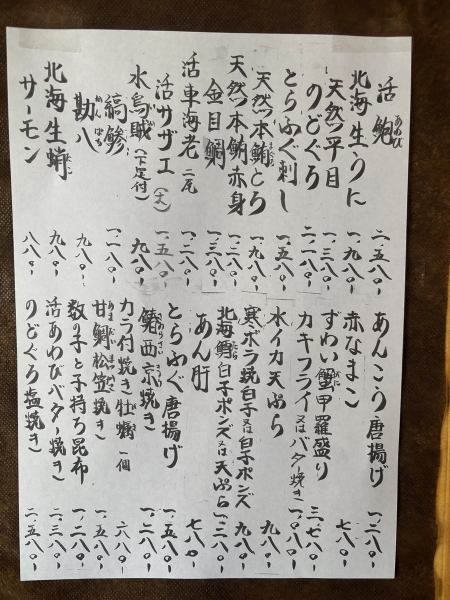 活鮑 あわび 二、五八〇-
北海生うに 一、九八〇-
天然平目 一、三八〇-
のどぐろ 二、二八〇-
とらふぐ刺し 一、五八〇-
天然本鮪とろ 一、九八〇-
天然本鮪赤身 一、二八〇-
金目鯛 一、三八〇-
活車海老 二尾 一、二八〇-
活サザエ(大) 一、五八〇-
水烏賊(下足付) 九八〇-
縞鯵 一、一八〇-
勘八 かんぱち 九八〇-
北海生蛸 たこ 九八〇-
サーモン 八八〇-
あんこう唐揚げ 一、二八〇-
赤なまこ 七八〇-
ずわい蟹甲羅盛り 三、七八〇-
カキフライ又はバター焼き 一、〇八〇-
水イカ天ぷら 九八〇-
寒ボラ焼白子又は白子ポンズ 九八〇-
北海鱈白子ポンズ又は天ぷら 一、二八〇-
あん肝 七八〇-
とらふぐ唐揚げ 一、五八〇-
鰆西京焼き 一、二八〇-
カラ付焼き牡蠣 一個 六八〇-
甘鯛松笠焼き 一、五八〇-
数の子と子持ち昆布 一、二八〇-
活あわびバター焼き 二、三八〇-
のどぐろ塩焼き 二、五八〇-